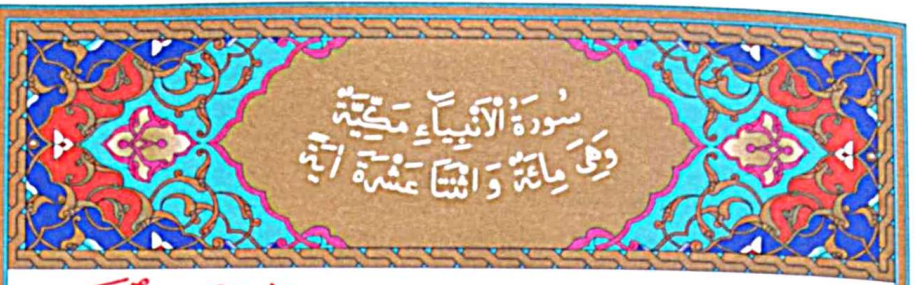 سُورَةُ الْاَنْبِيَٓاءِ مَكِّيَّةٌ
وَهِيَ مِائَةٌ وَ اثْنَتَا عَشْرَةَ اٰيَةً